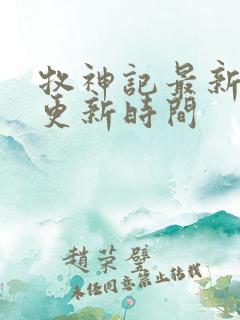 牧神記最新
更新時間
趙榮壁
未任同意禁止转載